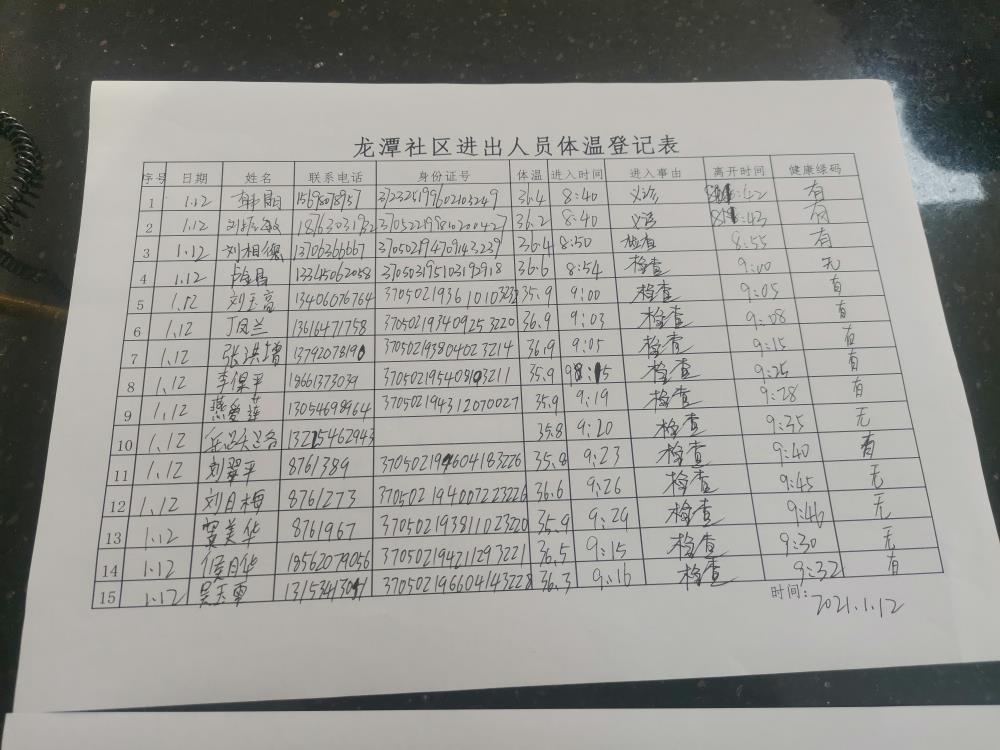 龙潭社区进出人员体温登记表
序号 日期 姓名 联系电话 身份证号 体温 进入时间 进入事由 离开时间 健康绿码
1 1.12 韩晶 15698078957 372325199602103249 36.4 8:40 义诊 8:42 有
2 1.12 18763031932 370522198620020427 36.2 8:40 8:43 有
3 1.12 刘相德 13706366667 370502194709143239 36.4 8:50 检查 8:55 有
4 1.12 13345062058 370503195103192918 36.6 8:54 检查 9:00 无
5 1.12 刘玉高 13406076764 370502193610103232 35.9 9:00 检查 9:05 有
6 1.12 丁凤兰 13616471758 370502193409253220 36.9 9:03 检查 9:08 有
7 1.12 张洪增 13792078190 370502193804023214 36.9 9:05 检查 9:15 有
8 1.12 李保平 18661373039 35.9 检查 9:25 有
9 1.12 燕爱莲 13054698964 370502194312070027 35.9 9:19 检查 9:28 有
10 1.12 13215462943 35.8 9:20 检查 9:35 无
11 1.12 刘翠平 8761389 370502194604183226 35.8 9:23 检查 9:40 有
12 1.12 刘月梅 8761273 370502194007223226 36.6 9:26 检查 9:45 无
13 1.12 贾美华 8761967 370502193811023220 35.9 9:29 检查 9:46 无
14 1.12 侯月华 18562079056 370502194211293221 36.5 9:15 检查 9:30 无
15 1.12 370502196604143228 36.3 9:16 检查 9:32 有
时间:2021.1.12